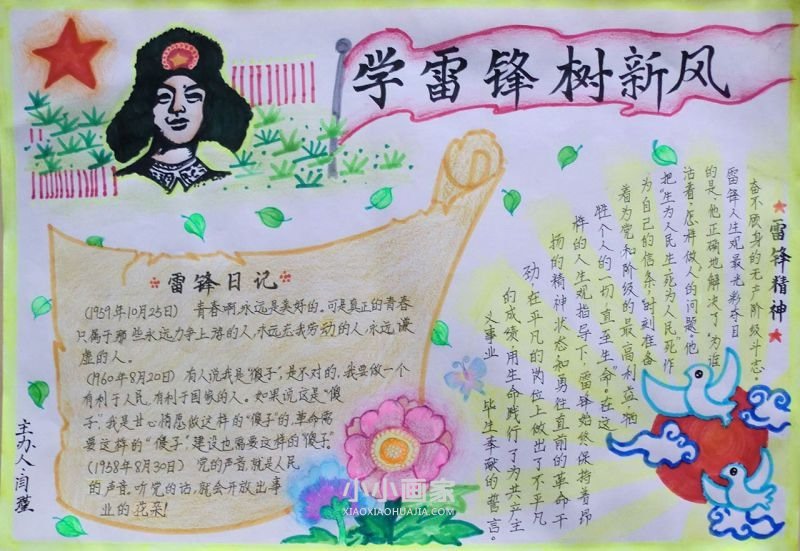 学雷锋树新风
雷锋日记
(1959年10月25日) 青春啊,永远是美好的,可是真正的青春
只属于那些永远力争上游的人,永远忘我劳动的人,永远谦
虚的人。
(1960年8月20日) 有人说我是“傻子”,是不对的,我要做一个
有利于人民,有利于国家的人。如果说这是“傻
子”,我是甘心情愿做这样的“傻子”的,革命需
要这样的“傻子”,建设也需要这样的“傻子”。
(1958年8月30日) 党的声音,就是人民
的声音,听党的话,就会开放出事
业的花朵!
主办人:闫
雷锋精神
奋不顾身的无产阶级斗志,
雷锋人生观最光彩夺目
的是,他正确地解决了,为谁
活着,怎样做人的问题,他
把“生为人民生,死为人民死”作
为自己的信条,时刻准备
着为党和阶级的最高利益牺
牲个人的一切,直至生命。在这
样的人生观指导下,雷锋始终保持着昂
扬的精神状态和勇往直前的革命干
劲,在平凡的岗位上做出了不平凡
的成绩,用生命践行了为共产主
义事业 毕生奉献的誓言。
小小画家
XIAOXIAOHUAJIA.COM